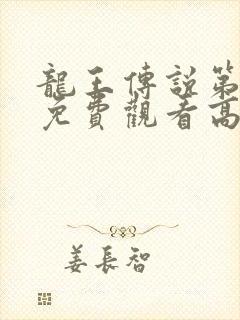 龍王傳說第
免費觀看高
姜長智